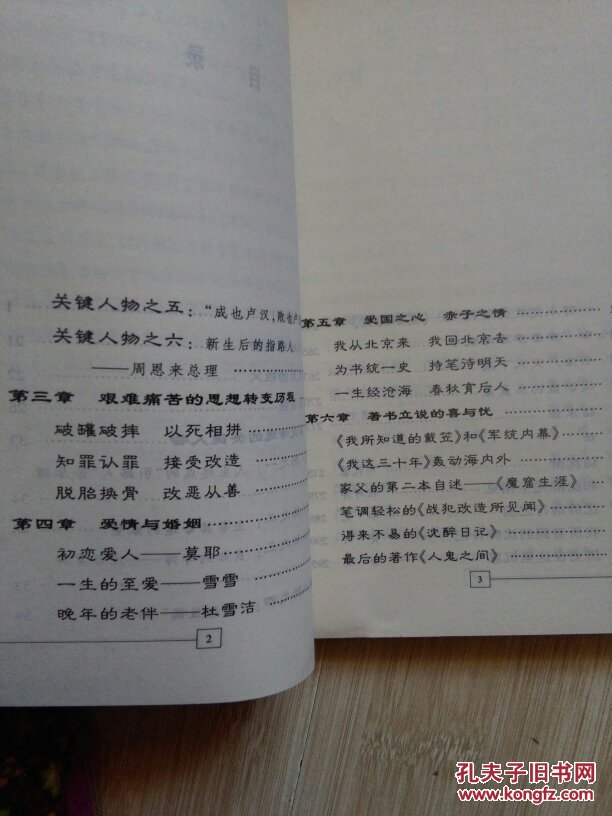 目 录
关键人物之五：“成也卢汉，败也卢
关键人物之六：新生后的指路人
——周恩来总理 ………
第三章 艰难痛苦的思想转变历程
破罐破摔 以死相拼 ………
知罪认罪 接受改造 ………
脱胎换骨 改恶从善 ………
第四章 爱情与婚姻 ………
初恋爱人——莫耶 ………
一生的至爱——雪雪 ………
晚年的老伴——杜雪洁 ………
2
第五章 爱国之心 赤子之情 ………
我从北京来 我回北京去 ………
为书统一史 持笔诗明天 ………
一生经沧海 春秋育后人 ………
第六章 著书立说的喜与忧 ………
《我所知道的戴笠》和《军统内幕》………
《我这三十年》轰动海内外 ………
家父的第二本自述——《魔窟生涯》………
笔调轻松的《战犯改造所见闻》………
得来不易的《沈醉日记》………
最后的著作《人鬼之间》………
3
孔夫子旧书网
www.kongfz.com